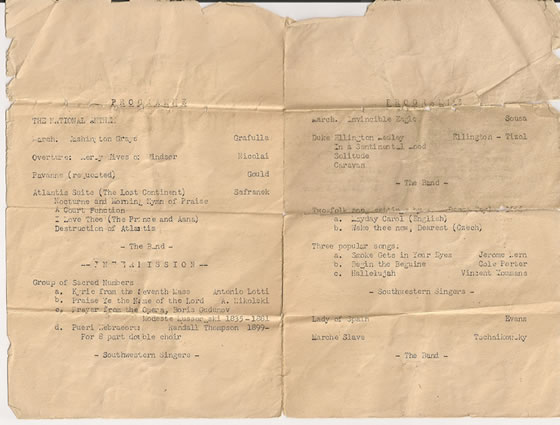 PROGRAMME
THE NATIONAL ANTHEM
March: Washington Grays Grafulla
Overture: Merry Wives of Windsor Nicolai
Pavanne (requested) Gould
Atlantis Suite (The Lost Continent) Safranek
Nocturne and Morning Hymn of Praise
A Court Function
I Love Thee (The Prince and Aana)
Destruction of Atlantis
- The Band -
--INTERMISSION--
Group of Sacred Numbers
a. Kyrie from the Seventh Mass Antonio Lotti
b. Praise Ye the Name of the Lord A. Nikolski
c. Prayer from the Opera, Boris Godunov
Modeste 1835-1881
d. Pueri Hebraeorum Randall Thompson 1899-
For 8 part double choir
- Southwestern Singers -
PROGRAMME
March: Invincible Eagle Sousa
Duke Ellington Medley Ellington - Vizol
In a Sentimental Mood
Solitude
Caravan
- The Band -
Two folk
a. Mayday Carol (English)
b. Wake thee now, Dearest (Czech)
Three popular songs:
a. Smoke Gets in Your Eyes Jerome Kern
b. Begin the Beguine Cole Porter
c. Hallelujah Vincent Youmans
- Southwestern Singers -
Lady of Spain Evans
Marche Slave Tschaikowsky
- The Band -